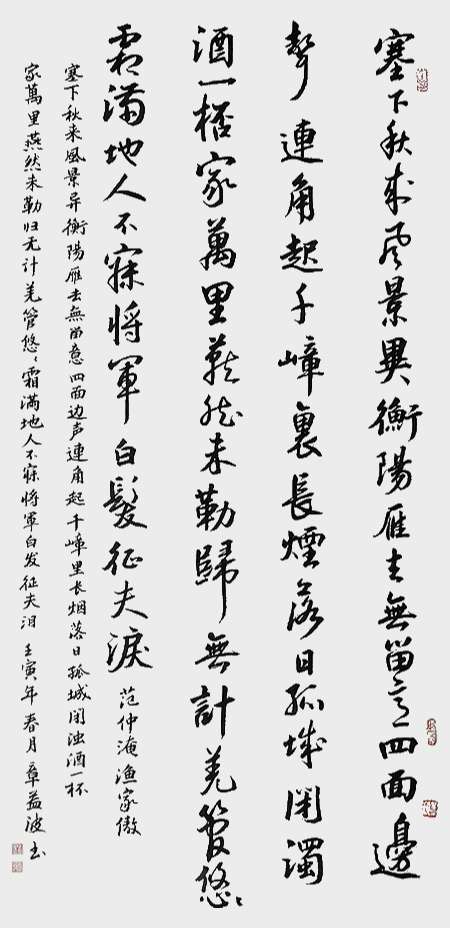 塞下秋來風景異衡陽雁去無留意四面邊
聲連角起千嶂裏長煙落日孤城閉濁
酒一桮家萬里燕然未勒歸無計羌管悠〻
霜滿地人不寐將軍白髮征夫淚 范仲淹漁家傲
塞下秋来風景异衡陽雁去無留意四面边声連角起千嶂里长烟落日孤城闭浊酒一杯
家萬里燕然未勒归无计羌管悠〻霜满地人不寐将軍白发征夫泪 壬寅年春月章益波书